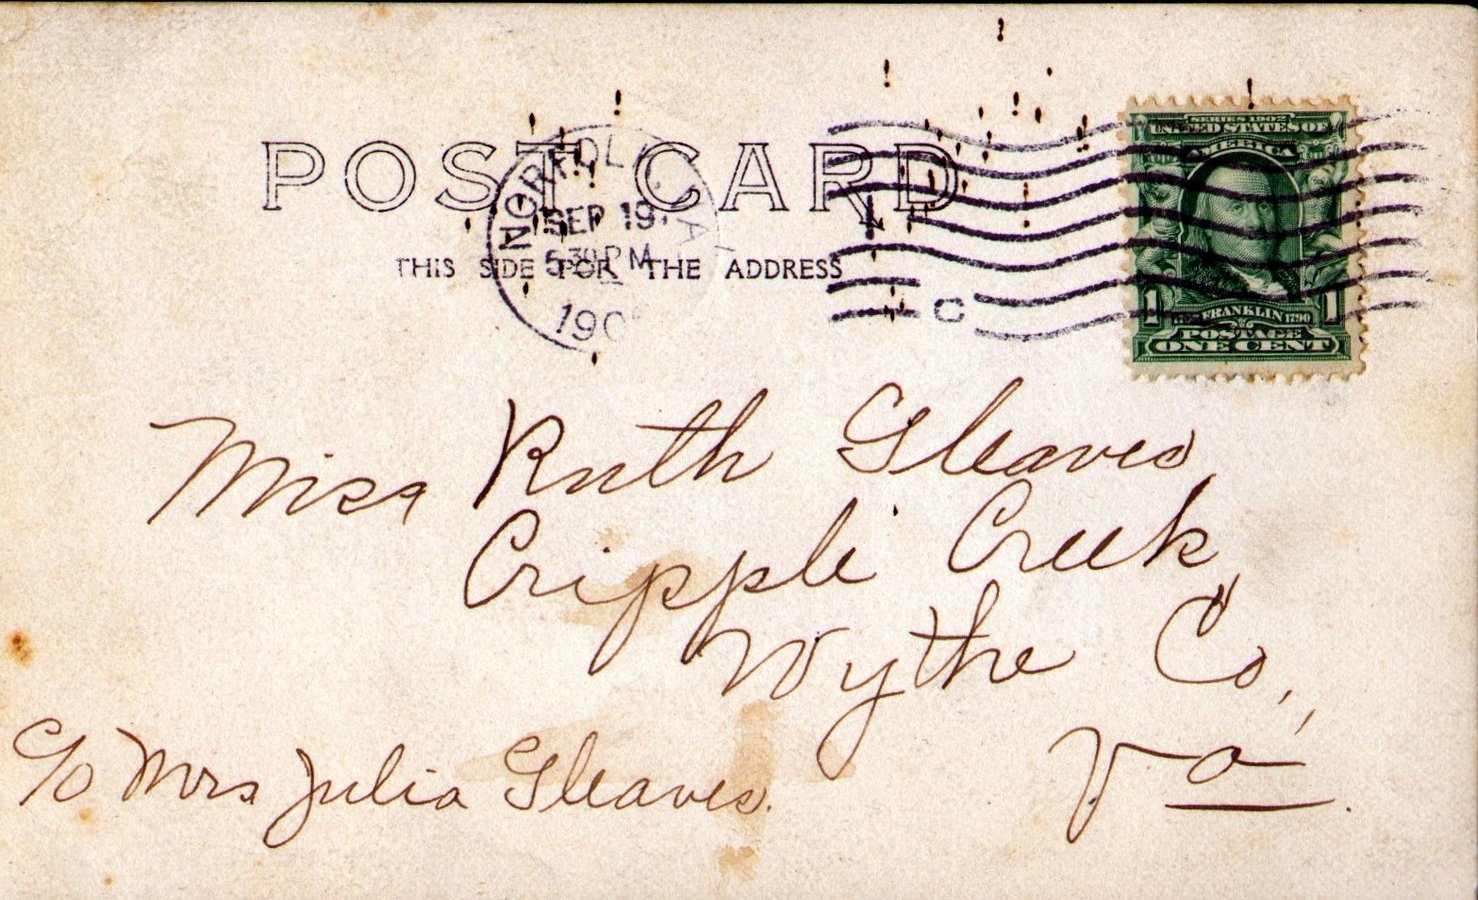 POST CARD
THIS SIDE FOR THE ADDRESS
NORFOLK, VA
SEP 19
530 PM
C
SERIES 1902
UNITED STATES OF
AMERICA
1 1
FRANKLIN 1790
POSTAGE
ONE CENT
Miss Ruth Gleaves,
Cripple Creek,
Wythe Co.,
Va.
c/o Mrs Julia Gleaves.